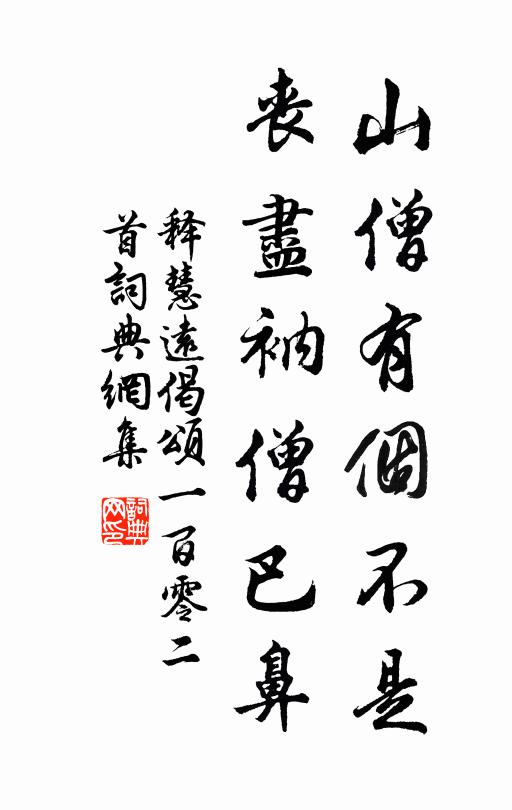 山僧有個不是
喪盡衲僧巴鼻
释慧遠偈頌一百零二
首詞典網集
詞典网印